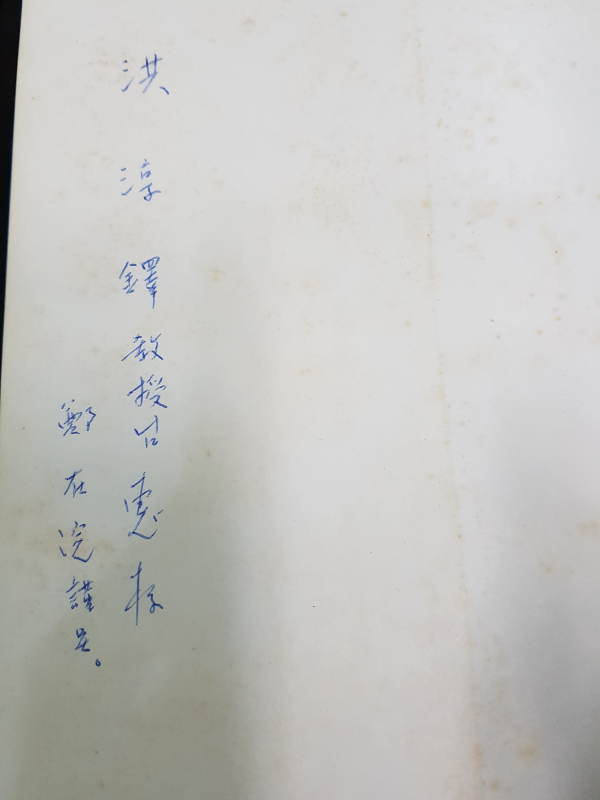 洪淳鐸教授님 惠存
鄭在浣 謹呈。